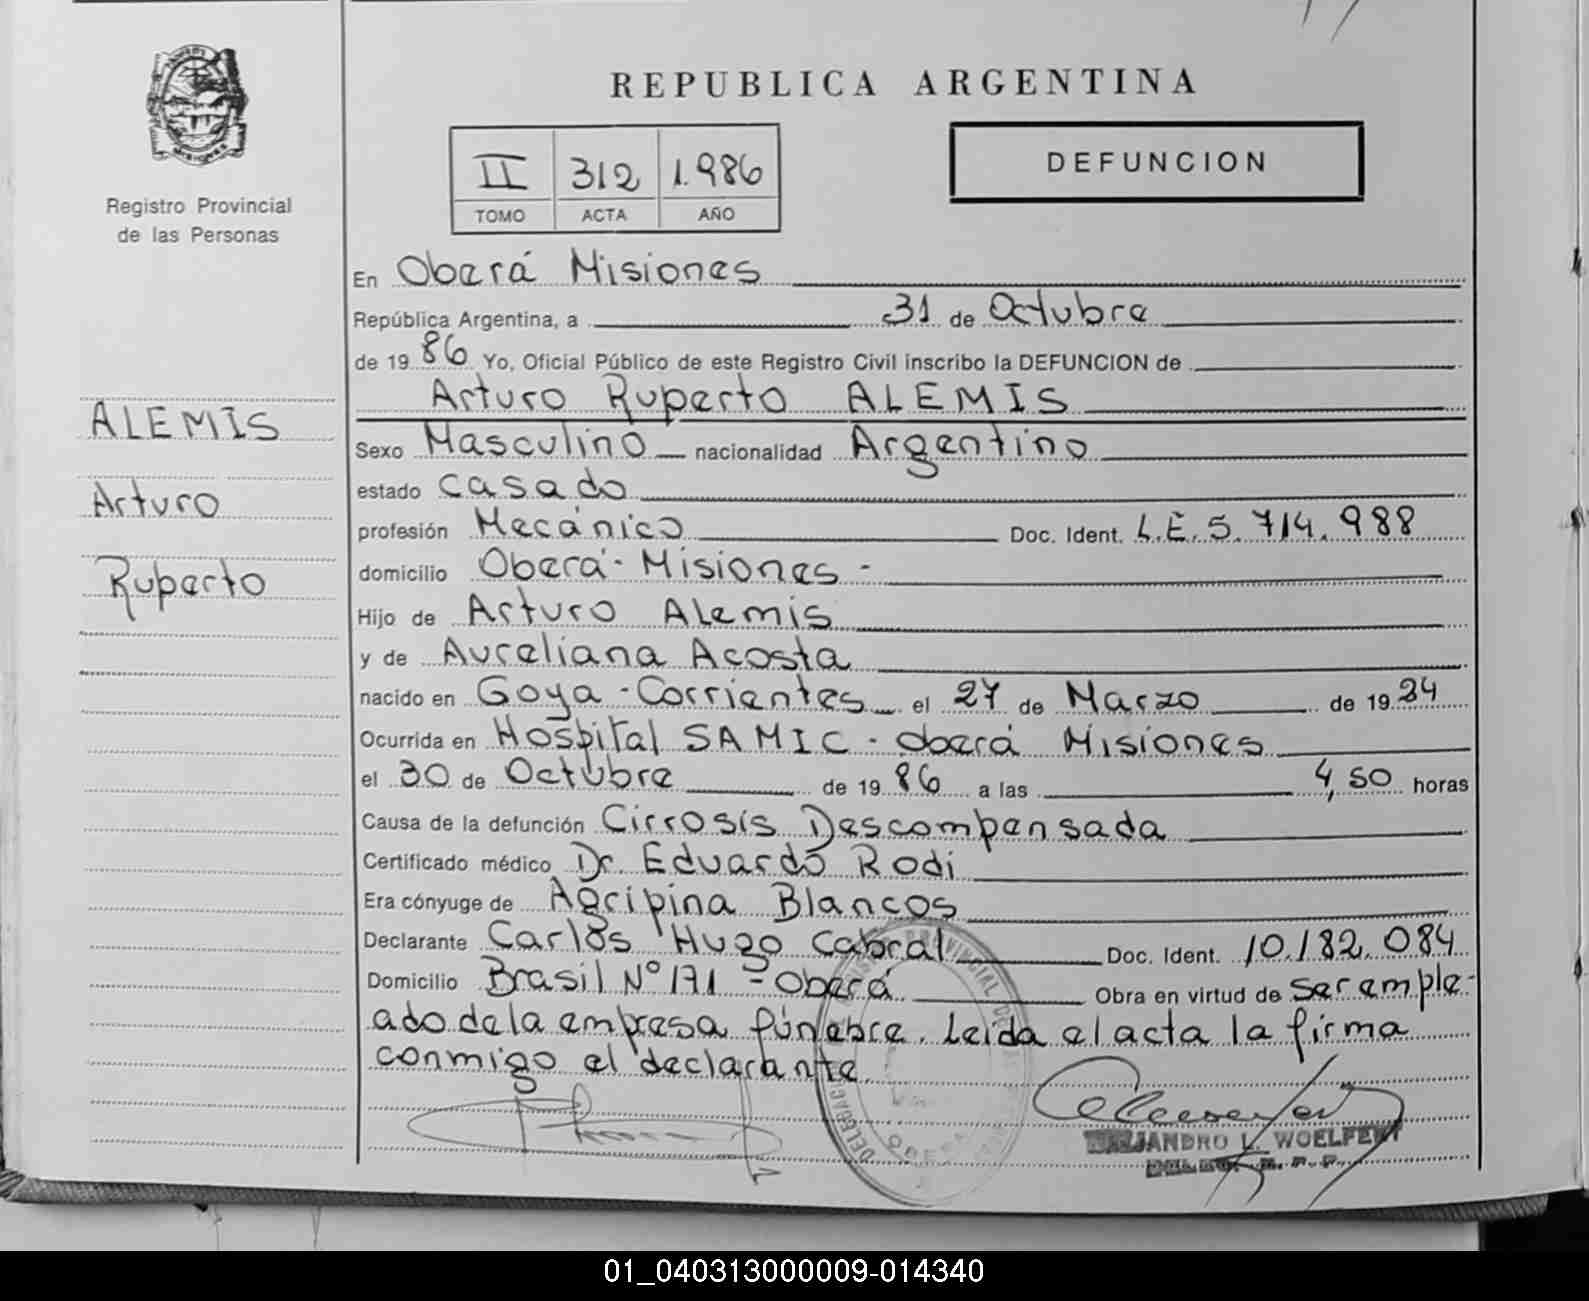 REPUBLICA ARGENTINA
II 312 1.986
TOMO ACTA AÑO
DEFUNCION
Registro Provincial
de las Personas
ALEMIS
Arturo
Ruperto
En Oberá Misiones
República Argentina, a 31 de Octubre
de 1986 Yo, Oficial Público de este Registro Civil inscribo la DEFUNCION de
Arturo Ruperto ALEMIS
Sexo Masculino nacionalidad Argentino
estado casado
profesión Mecánico Doc. Ident. L.E. 5.714.988
domicilio Oberá - Misiones -
Hijo de Arturo Alemis
y de Aureliana Acosta
nacido en Goya - Corrientes el 27 de Marzo de 1924
Ocurrida en Hospital SAMIC - Oberá Misiones
el 30 de Octubre de 1986 a las 4,50 horas
Causa de la defunción Cirrosis Descompensada
Certificado médico Dr. Eduardo Rodi
Era cónyuge de Agripina Blancos
Declarante Carlos Hugo Cabral Doc. Ident. 10.182.084
Domicilio Brasil Nº 171 - Oberá Obra en virtud de ser emple-
ado de la empresa fúnebre. Leida el acta la firma
conmigo el declarante
PROVINCIAL DE
DELEGAC
OBERA
ALEJANDRO L. WOELFERT
01_040313000009-014340